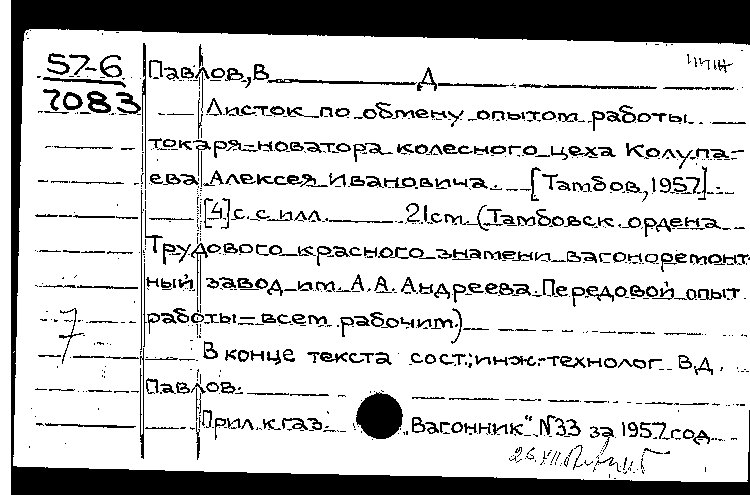 57-6
7083
Павлов, В Д
Листок по обмену опытом работы
токаря-новатора колесного цеха Колупа-
ева Алексея Ивановича. [Тамбов, 1957].
[4] с. с илл. 21см. (Тамбовск. ордена
Трудового красного знамени вагоноремонт
ный завод им. А.А. Андреева. Передовой опыт
работы - всем рабочим)
7
В конце текста сост.: инж.-технолог В.Д.
Павлов.
Прил. к газ. „Вагонник" №33 за 1957 год
26.XII